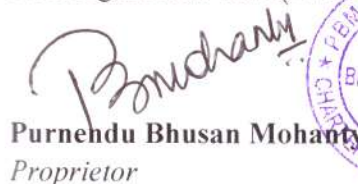 PBM
CHAR
Purnendu Bhusan Mohanty
Proprietor